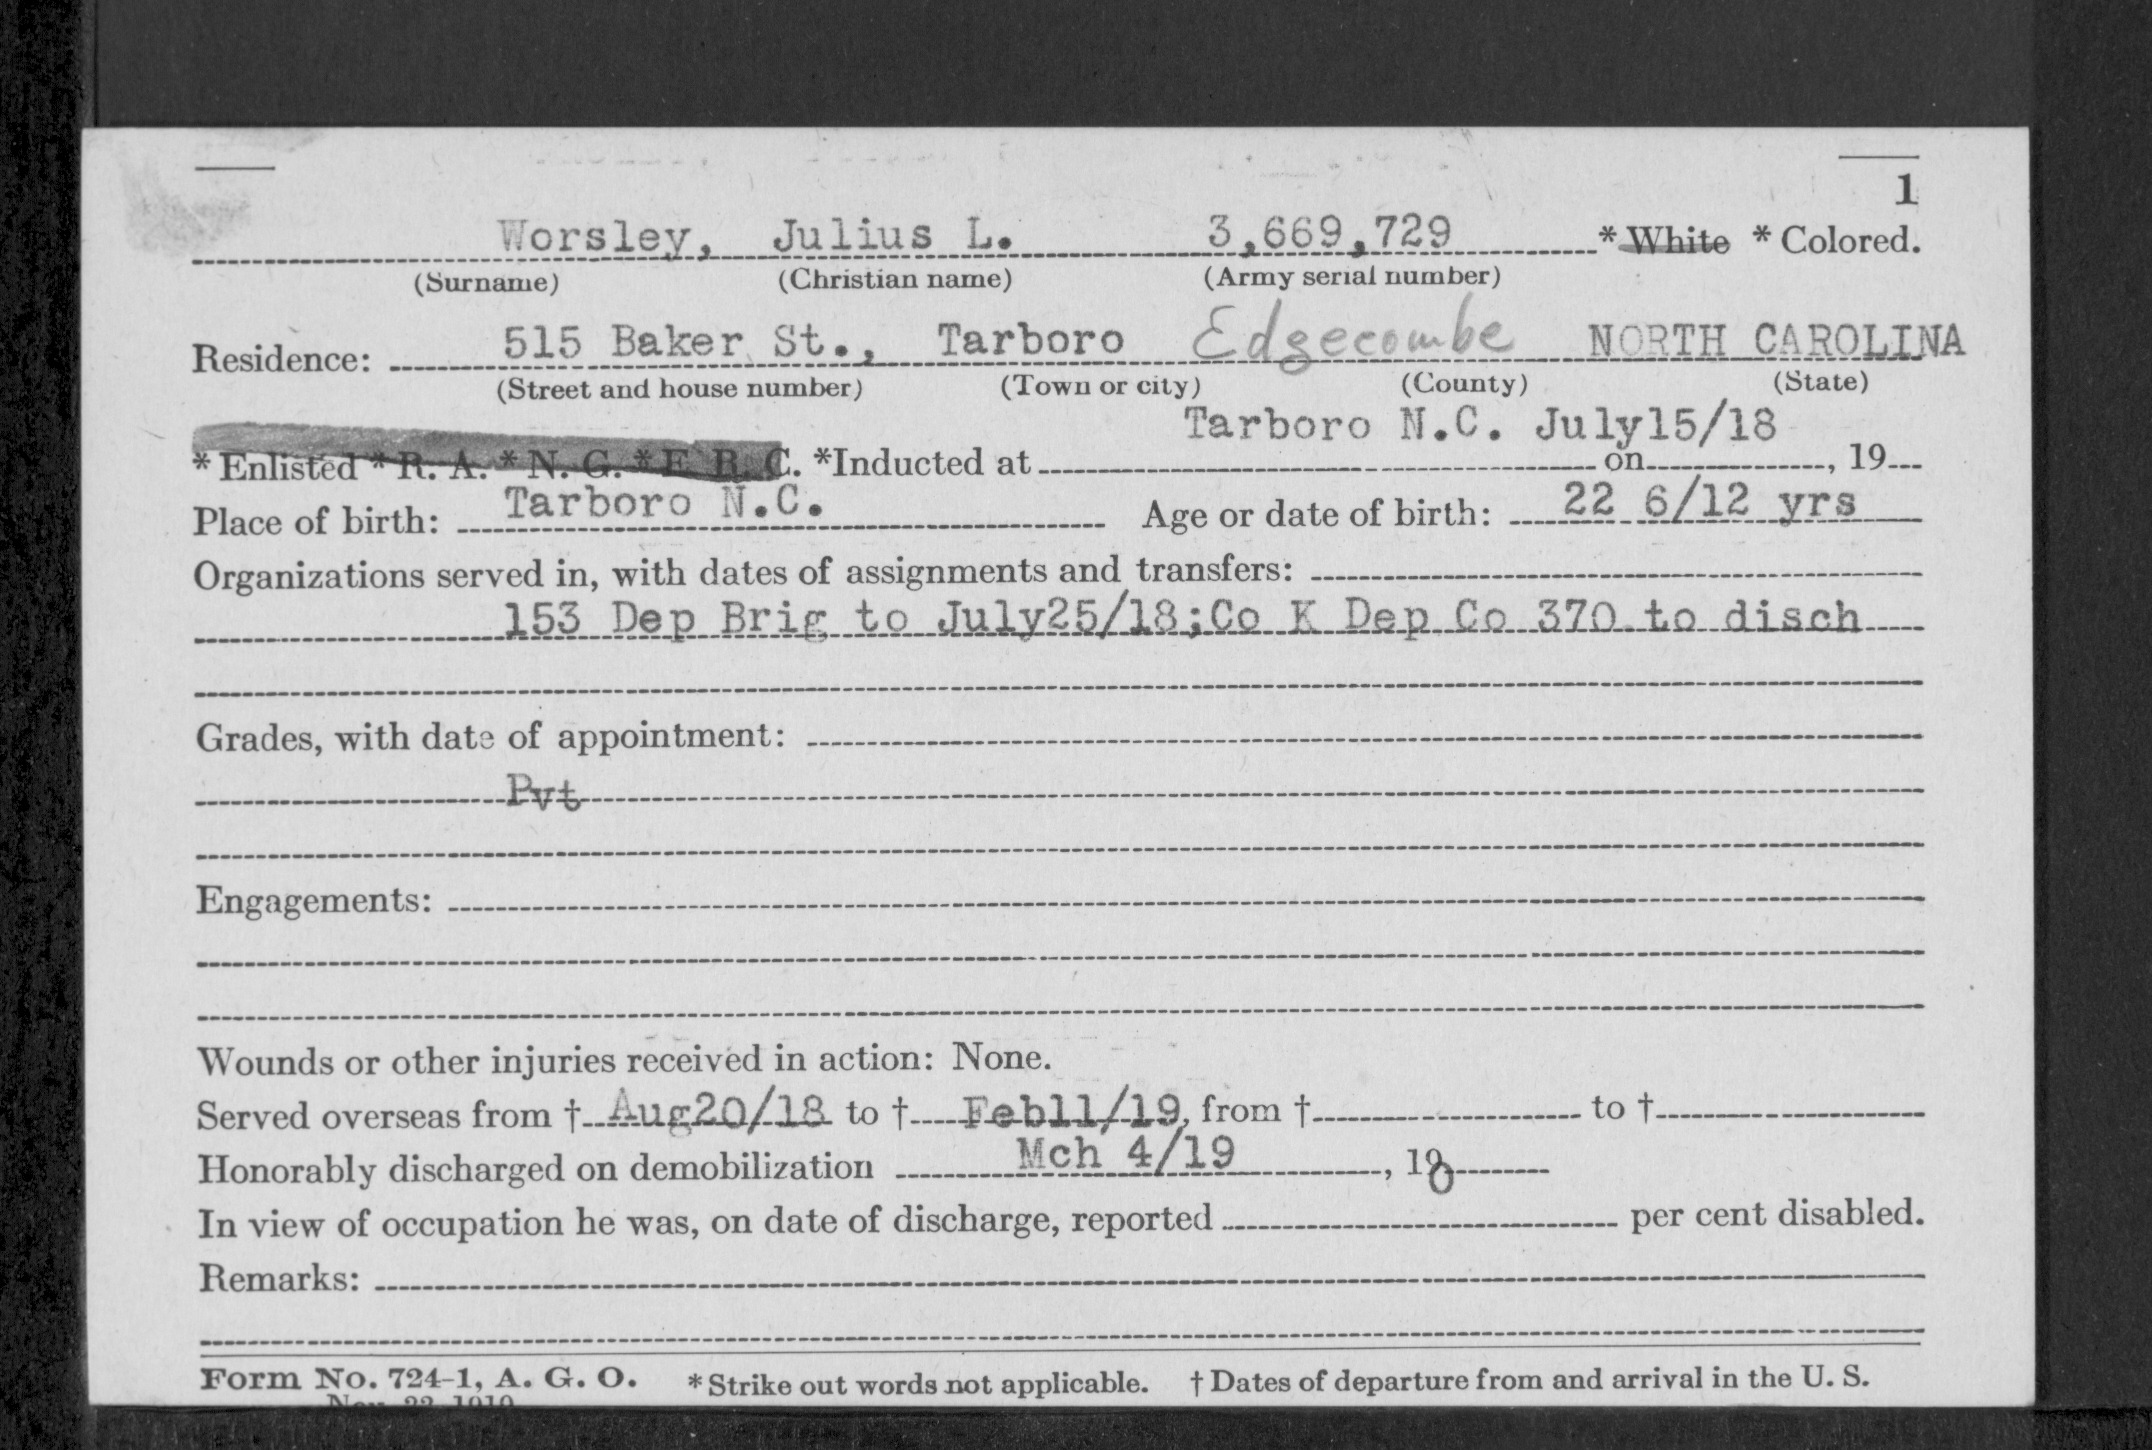 1
Worsley, Julius L. 3,669,729 * White * Colored.
(Surname) (Christian name) (Army serial number)
Residence: 515 Baker St., Tarboro Edgecombe NORTH CAROLINA
(Street and house number) (Town or city) (County) (State)
Tarboro N.C. July15/18
* Enlisted * R. A. * N. G. * E. R. C. *Inducted at on , 19
Place of birth: Tarboro N.C. Age or date of birth: 22 6/12 yrs
Organizations served in, with dates of assignments and transfers:
153 Dep Brig to July25/18;Co K Dep Co 370 to disch
Grades, with date of appointment:
Pvt
Engagements:
Wounds or other injuries received in action: None.
Served overseas from † Aug20/18 to † Feb11/19, from † to †
Honorably discharged on demobilization Mch 4/19 , 19
In view of occupation he was, on date of discharge, reported 0 per cent disabled.
Remarks:
Form No. 724-1, A. G. O. * Strike out words not applicable. † Dates of departure from and arrival in the U. S.